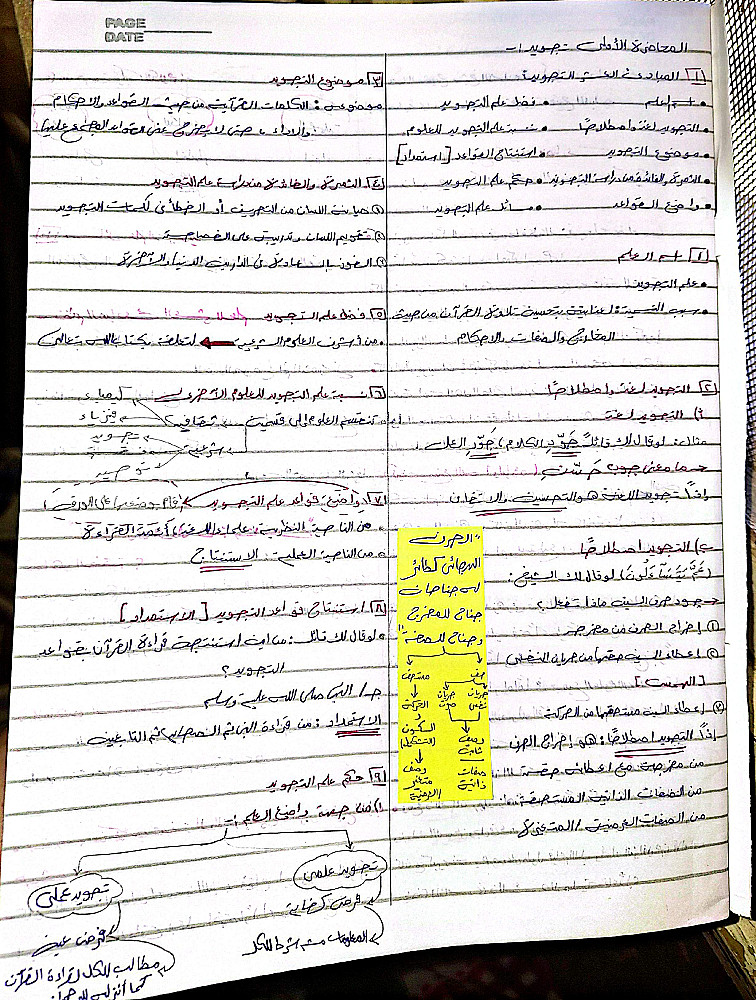 PAGE
DATE
المحاضرة الأولى تجويد :-
[١] المبادئ العشر التجويد:
• اسم العلم • فضل علم التجويد
• التجويد لغة واصطلاحًا • نسبة علم التجويد للعلوم
• موضوع التجويد • استنتاج القواعد [استمداد]
• الثمرة والفائدة من دراسة التجويد • حكم علم التجويد
• واضع القواعد • مسائل علم التجويد
[١] اسم العلم
• علم التجويد
• سبب التسمية: لعنايته بتحسين تلاوة القرآن من حيث
المخارج والصفات والأحكام
[٢] التجويد لغة واصطلاحًا
أ) التجويد لغة
مثال: لو قال لك قائلٌ جَوِّد الكلام، جَوِّد العلم
ما معنى جود؟ حَسِّن
إذًا تجويد اللغة هو التحسين والإتقان
ب) التجويد اصطلاحًا
(عَمَّ يَتَسَآءَلُونَ) لو قال لك الشيخ:
جود حرف السين ماذا تفعل؟
① إخراج الحرف من مخرجه
② إعطاء السين حقها من جريان النفس
[الهمس]
③ إعطاء السين مستحقها من الحركة
إذًا التجويد اصطلاحًا: هو إخراج الحرف
من مخرجه مع إعطائه حقه
من الصفات الذاتية المستحقة
من الصفات العرضية / المتغيرة
"الحرف
الهجائي كطائر
له جناحان
جناح للمخرج
وجناح للصفة"
حق مستحق
جريان نفس جريان صوت الحركة
و
السكون
وصف ثابت
صفات ذاتية
وصف
متغير
[٣] موضوع التجويد
موضوعه: الكلمات القرآنية من حيث القواعد والأحكام
والأداء، حتى لا يخرج عن القواعد المجمع عليها
[٤] الثمرة والفائدة من دراسة علم التجويد
① صيانة اللسان من التحريف أو الخطأ في كلمات التجويد
② تقويم اللسان وتدريبه على الفصاحة
③ الفوز بالسعادة في الدارين الدنيا والآخرة
[٥] فضل علم التجويد
• من أشرف العلوم الشرعية ← لتعلقه بكتاب الله تعالى
[٦] نسبة علم التجويد للعلوم الأخرى
كيمياء
• تنقسم العلوم إلى قسمين ثقافية
فيزياء
شرعية
تجويد
توحيد
[٧] واضع قواعد علم التجويد (قام بوضعها على الورق)
• من الناحية النظرية: علماء اللغة، أئمة القراءة
• من الناحية العملية: الاستنتاج
[٨] استنتاج قواعد التجويد [الاستمداد]
• لو قال لك قائل: من أين استنتجت قراءة القرآن بقواعد
التجويد؟
جـ/ النبي صلى الله عليه وسلم
الاستمداد: من قراءة النبي ثم الصحابة ثم التابعين
[٩] حكم علم التجويد
١) من جهة واضع العلم :-
تجويد علمي
فرض كفاية
تجويد عملي
فرض عين
مطالب للكل لقراءة القرآن
كما أنزل